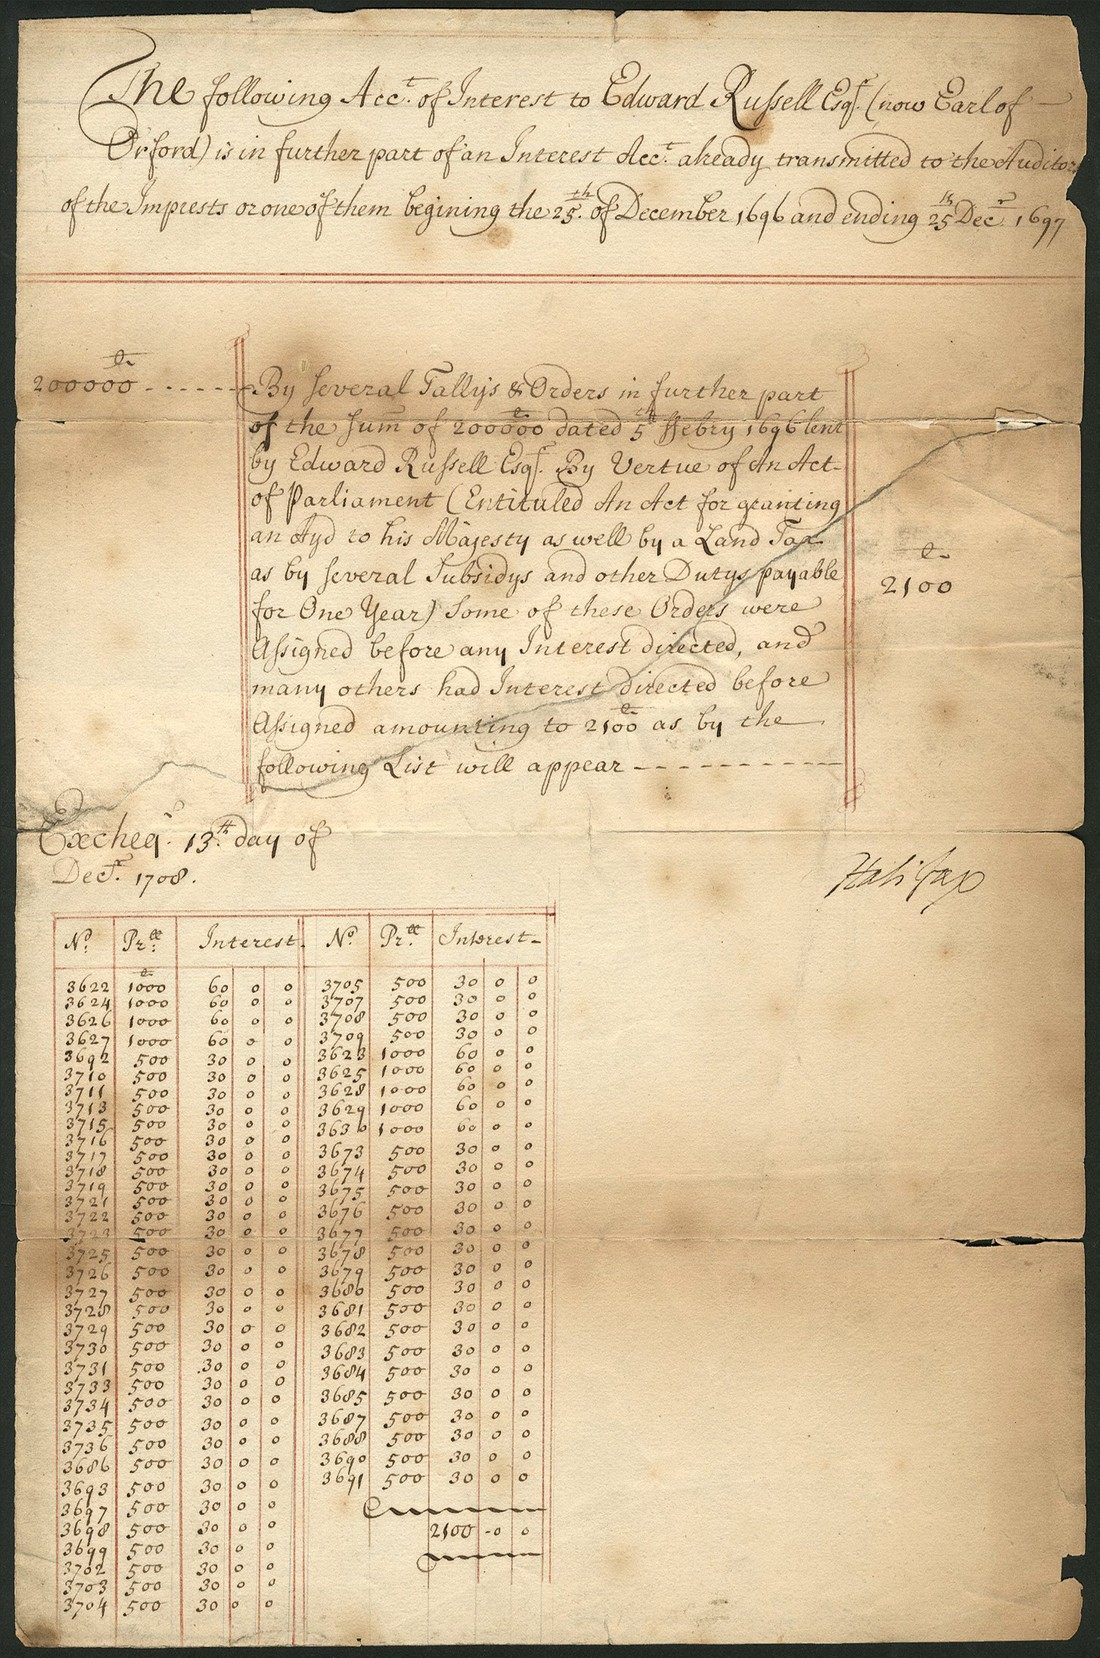 The following Acct. of Interest to Edward Russell Esqr. (now Earl of
Orford) is in further part of an Interest Acct. already transmitted to the Auditors
of the Imprests or one of them begining the 25th. of December 1696 and ending 25th Decr. 1697
200000 l. - - - - - - By several Tallys & Orders in further part
of the sum of 200000 l. dated 5th ffebry 1696 lent
by Edward Russell Esqr. By Vertue of An Act
of Parliament (Entituled An Act for granting
an Ayd to his Majesty as well by a Land Tax
as by several Subsidys and other Dutys payable
for One Year) Some of these Orders were
Assigned before any Interest directed, and
many others had Interest directed before
Assigned amounting to 2100 l. as by the
following List will appear - - - - - - - - - -
l.
2100
Excheqr. 13th. day of
Decr. 1708.
Halifax
No. Prll. Interest. No. Prll. Interest
3622 1000 l. 60 0 0 3705 500 30 0 0
3624 1000 60 0 0 3707 500 30 0 0
3626 1000 60 0 0 3708 500 30 0 0
3627 1000 60 0 0 3709 500 30 0 0
3692 500 30 0 0 3623 1000 60 0 0
3710 500 30 0 0 3625 1000 60 0 0
3711 500 30 0 0 3628 1000 60 0 0
3713 500 30 0 0 3629 1000 60 0 0
3715 500 30 0 0 3630 1000 60 0 0
3716 500 30 0 0 3673 500 30 0 0
3717 500 30 0 0 3674 500 30 0 0
3718 500 30 0 0 3675 500 30 0 0
3719 500 30 0 0 3676 500 30 0 0
3721 500 30 0 0 3677 500 30 0 0
3722 500 30 0 0 3678 500 30 0 0
3723 500 30 0 0 3679 500 30 0 0
3725 500 30 0 0 3680 500 30 0 0
3726 500 30 0 0 3681 500 30 0 0
3727 500 30 0 0 3682 500 30 0 0
3728 500 30 0 0 3683 500 30 0 0
3729 500 30 0 0 3684 500 30 0 0
3730 500 30 0 0 3685 500 30 0 0
3731 500 30 0 0 3687 500 30 0 0
3733 500 30 0 0 3688 500 30 0 0
3734 500 30 0 0 3690 500 30 0 0
3735 500 30 0 0 3691 500 30 0 0
3736 500 30 0 0
3686 500 30 0 0
3693 500 30 0 0
3697 500 30 0 0 2100 - 0 0
3698 500 30 0 0
3699 500 30 0 0
3702 500 30 0 0
3703 500 30 0 0
3704 500 30 0 0